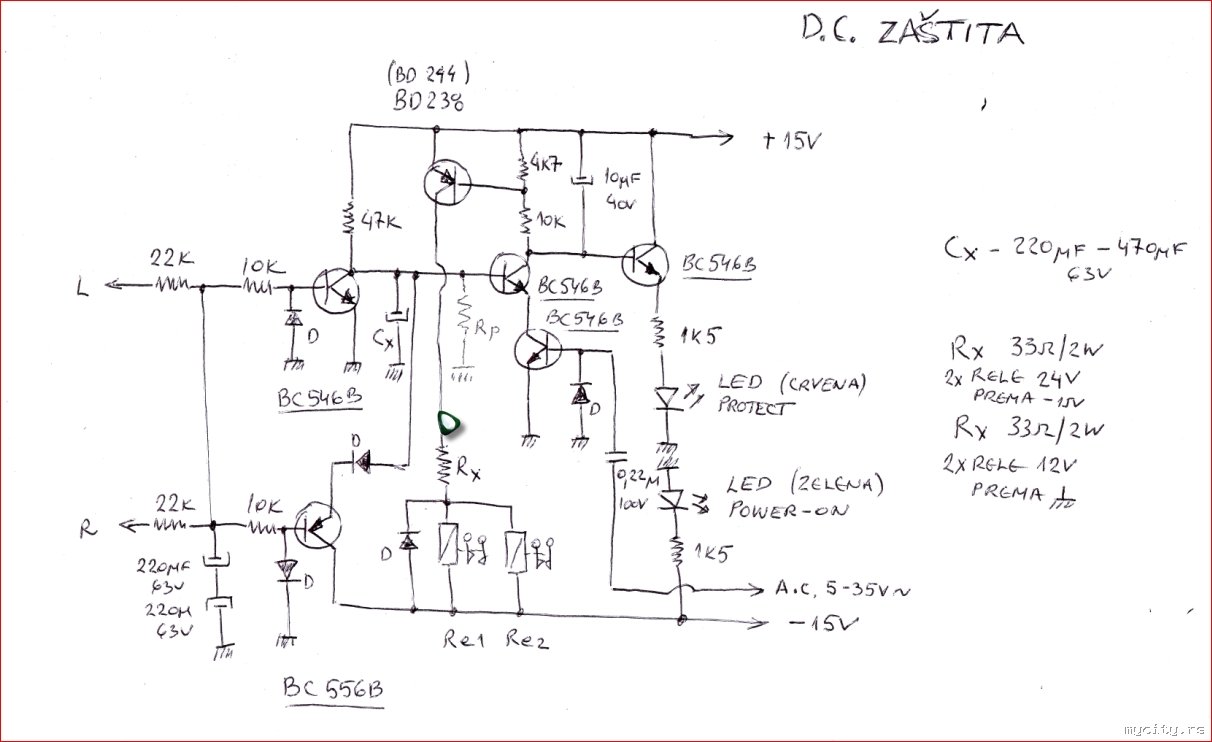 D.C. ZAŠTITA
(BD 244)
BD238
+15V
4K7
10µF
40V
47K
10K
22K
10K
L
BC546B
BC546B
BC546B
D
Cx
Rp
1K5
D
BC546B
LED (CRVENA)
PROTECT
Cx - 220µF - 470µF
63V
Rx 33Ω/2W
2x RELE 24V
PREMA -15V
Rx 33Ω/2W
2x RELE 12V
PREMA
D
Rx
0,22M
100V
LED (ZELENA)
POWER-ON
22K
10K
R
D
1K5
220MF
63V
220M
63V
D
A.C. 5-35V~
-15V
Re1 Re2
BC556B
mycity.rs